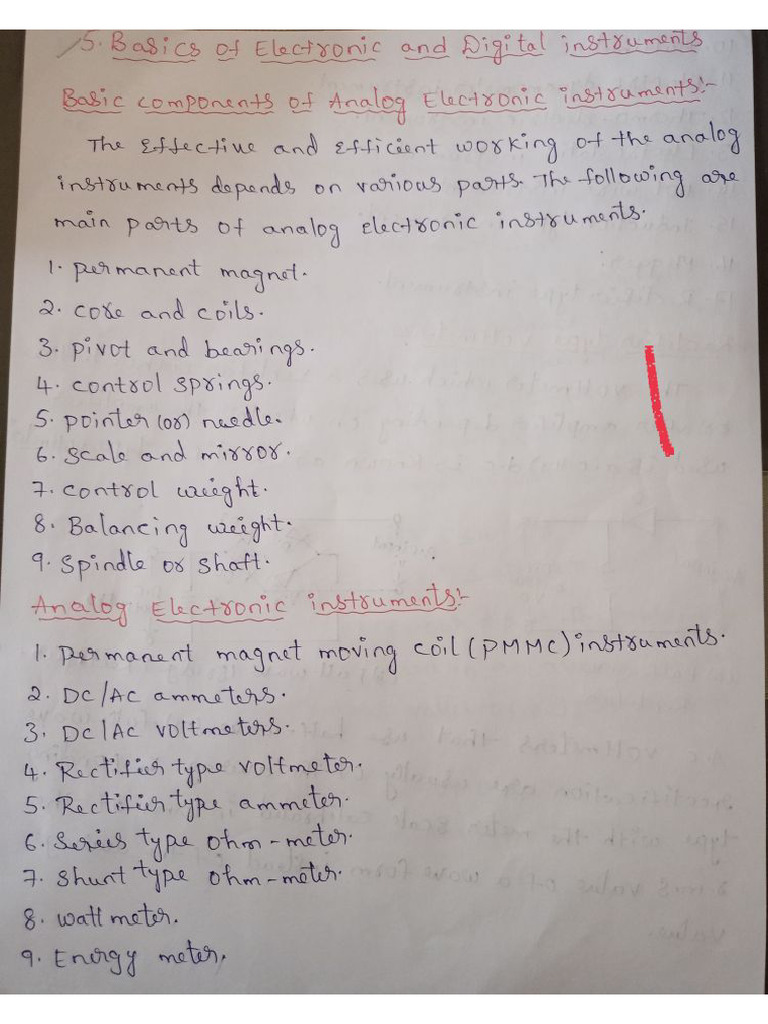 5. Basics of Electronic and Digital instruments
Basic components of Analog Electronic instruments:-
The Effective and Efficient working of the analog
instruments depends on various parts. The following are
main parts of analog Electronic instruments.
1. permanent magnet.
2. core and coils.
3. pivot and bearings.
4. control springs.
5. pointer (or) needle.
6. scale and mirror.
7. control weight.
8. Balancing weight.
9. spindle or shaft.
Analog Electronic instruments:-
1. permanent magnet moving coil (PMMC) instruments.
2. DC/AC ammeters.
3. DC/AC voltmeters.
4. Rectifier type voltmeter.
5. Rectifier type ammeter.
6. Series type ohm-meter.
7. Shunt type ohm-meter.
8. watt meter.
9. Energy meter.